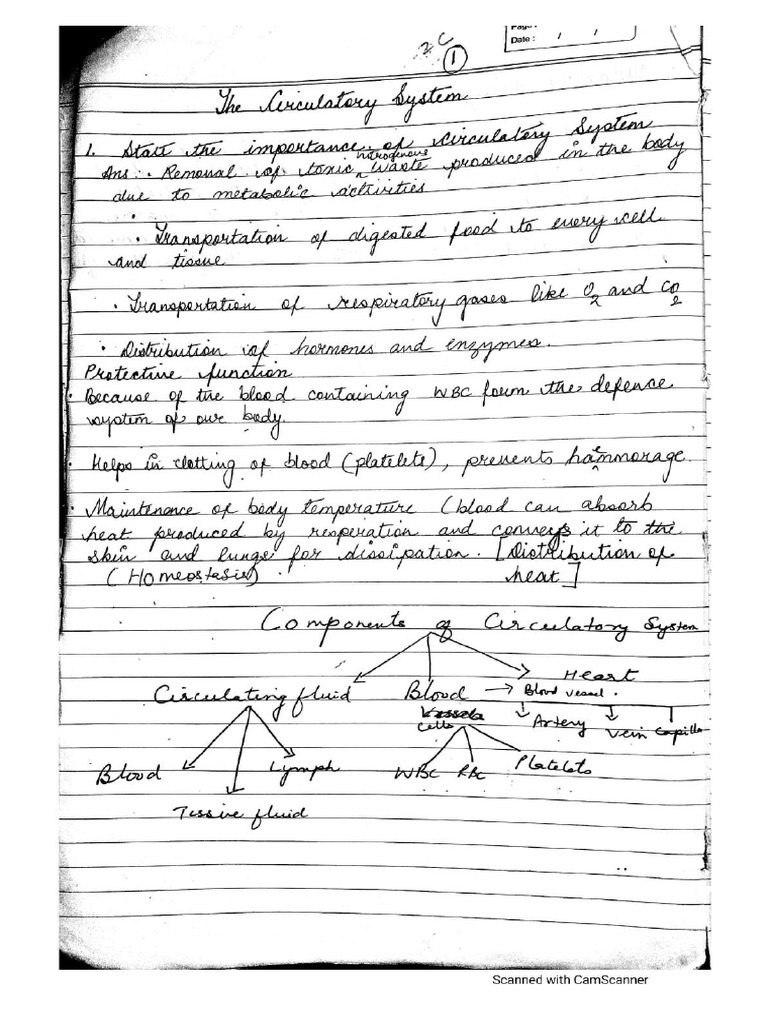 Page :
Date : / /
1
The Circulatory System
1. State the importance of circulatory System
nitrogenous
Ans . Removal of toxic waste produced in the body
due to metabolic activities
. Transportation of digested food to every cell
and tissue
. Transportation of respiratory gases like O2 and CO2
. Distribution of hormones and enzymes.
Protective function
. Because of the blood containing WBC form the defence
system of our body.
. Helps in clotting of blood (platelets), prevents haemmorage.
. Maintenance of body temperature (blood can absorb
heat produced by resperation and conveys it to the
skin and lungs for dissipation. [Distribution of
(Homeostasis) heat]
Components of Circulatory System
Heart
Circulating fluid Blood → Blood vessel.
Vessels
cells Artery Vein Capilla
Blood Lymph WBC RBC Platelets
Tissive fluid
Scanned with CamScanner